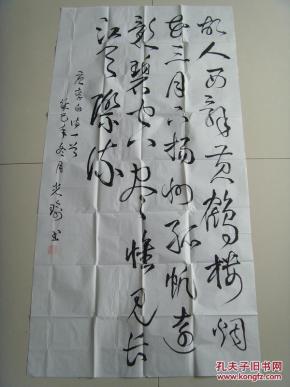 故人西辞黄鹤楼烟
花三月下扬州孤帆远
影碧空尽惟见长
江天际流
唐李白诗一首
癸巳年冬月光瑜书
孔夫子旧书网